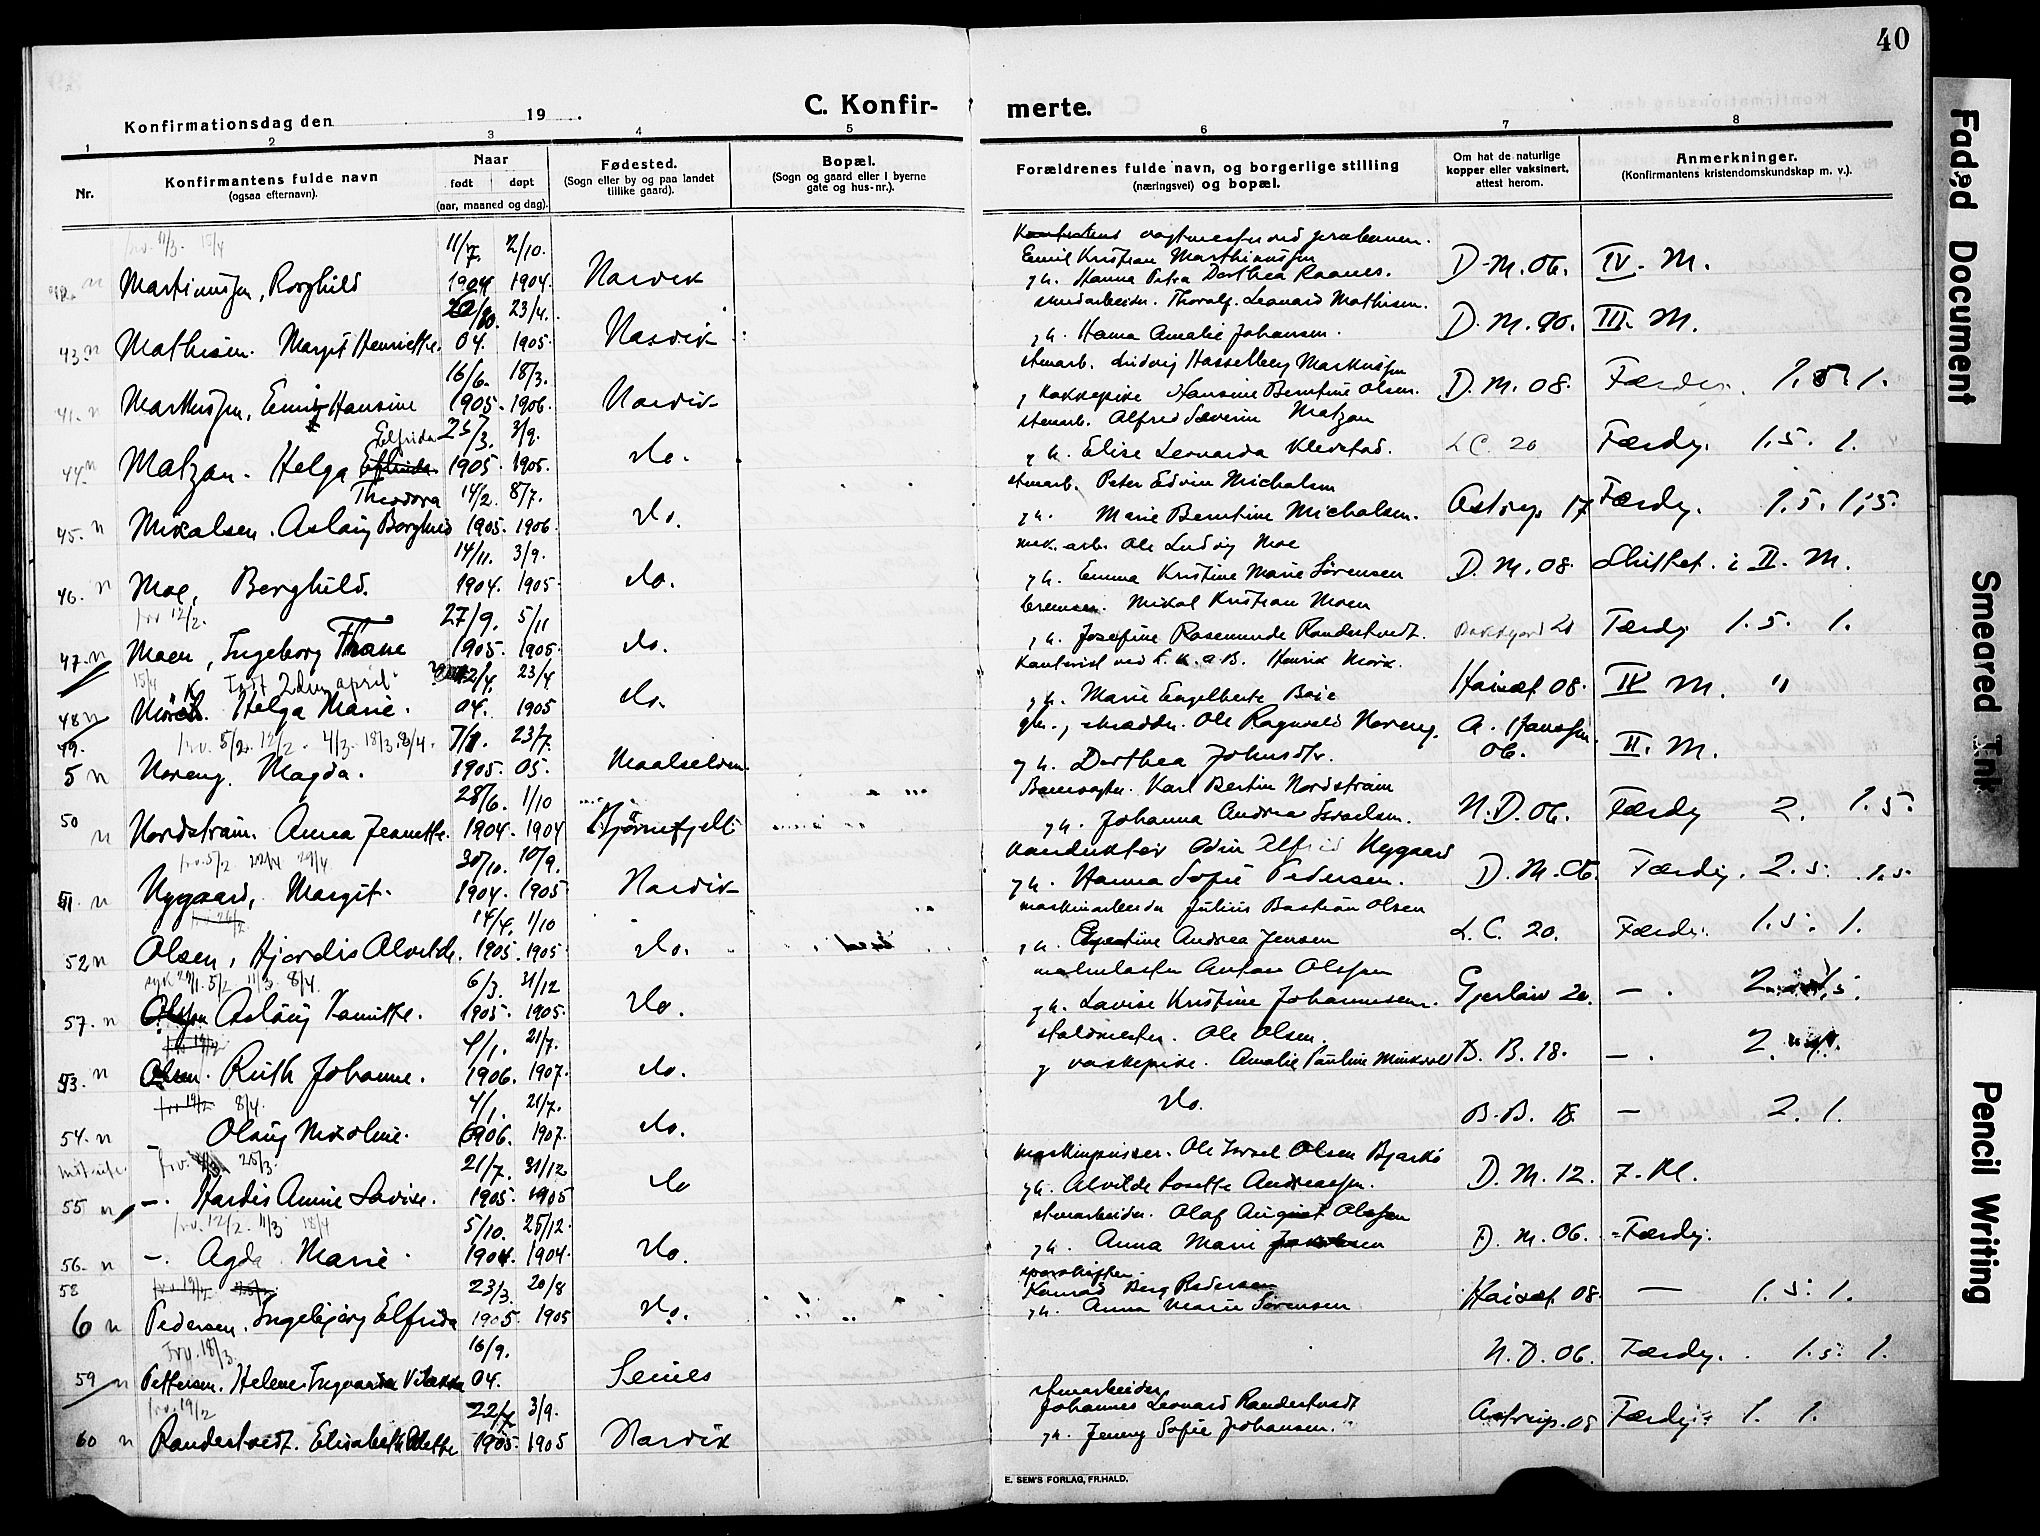 40
Konfirmationsdag den 19
C. Konfir-
merte.
1 2 3 4 5
6 7 8
Nr.
Konfirmantens fulde navn
(ogsaa efternavn).
Naar
født døpt
(aar, maaned og dag).
Fødested.
(Sogn eller by og paa landet
tillike gaard).
Bopæl.
(Sogn og gaard eller i byerne
gate og hus-nr.).
Forældrenes fulde navn, og borgerlige stilling
(næringsvei) og bopæl.
Om hat de naturlige
kopper eller vaksinert,
attest herom.
Anmerkninger.
(Konfirmantens kristendomskundskap m. v.).
11/7. 2/10.
Martinussen, Borghild 1904 1904. Narvik
Emil Kristian Marthinussen
g h. Hanna Petra Dorthea Raanes. D. M. 06. IV. M.
23/4.
43. n Mathisen. Margit Henriette. 04. 1905. Narvik
Thoralf. Leonard Mathisen.
g h. Hanna Amalie Johansen. D. M. III. M.
16/6. 18/3.
41. n Markussen, Hansine 1905. 1906. Narvik
stenarb. Ludvig Hasselberg Markussen
g kokkepike Hansine Berntine Olsen. D. M. 08. Færdig. 1.5. 1.
Elfrida 25/3. 3/9.
44. n Matzan. Helga 1905. 1905. do.
stenarb. Alfred Severin Matzan
g h. Elise Leonarda Klevstad. L C. 20 Færdig. 1.5. 1.
Theodora 14/2. 8/7.
45. n Mikalsen. Aslaug Borghild 1905. 1906. do.
stenarb. Peter Edvin Michalsen
g h. Marie Berntine Michalsen. Astrup 17 Færdig. 1.5. 1,5.
14/11. 3/9.
46. n Moe, Borghild. 1904. 1905. do.
mek. arb. Ole Ludvig Moe
g h. Emma Kristine Marie Sørensen D. M. 08. Skiftet. i II. M.
frv 12/2. 27/9. 5/11
47. n Moen, Ingeborg 1905. 1905. do.
bremser. Mikal Kristian Moen
g h. Josefine Rosemunde Randestvedt. 20 Færdig 1.5. 1.
15/4 2/4. 23/4
48 n Mörk. Helga Marie. 04. 1905 do.
Kontorist ved L. K. a B. Henrik Mörk.
g h. Marie Engelberte Boie Haisæt 08. IV M. "
49. frv. 5/2. 12/2. 4/3. 18/3 8/4. 23/7.
5 n Noreng. Magda. 1905. 05. Maalselven.
skrædder. Ole Ragnvald Noreng.
g h. Dorthea Johnsdtr. A. Hanssen. 06. II. M.
50 28/6. 1/10
n Nordstrøm. Anna Jeanette. 1904. 1904 Bjørnefjell
Banevogter. Karl Bertin Nordstrøm
g h. Johanna Andrea Israelsen. N. D. 06. Færdig 2. 1.5.
frv. 5/2 22/4 29/4 30/10. 10/9.
51. n Nygaard, Margit. 1904. 1905 Narvik
Konduktør Odin Alfred Nygaard
g h. Hanna Sofie Pedersen. D. M. 06. Færdig. 2.5. 1.5
14/4. 1/10
52 n Olsen, Hjørdis Alvilde. 1905. 1905. do.
maskinarbeider Julius Bastian Olsen
g h. Andrea Jensen L. C. 20. Færdig. 1.5. 1.
syk 29/1. 5/2 11/3 8/4. 6/3. 31/12
57. n Aslaug Kamitte. 1905. 1905. do.
malmlaster Anton Olssen
g h. Lovise Kristine Johannessen. Gjerløw 20. — . 2.
4/1. 21/7.
53. n Olsen. Ruth Johanne. 1906. 1907. do.
staldmester. Ole Olsen.
g vaskepike. Amalie Pauline B. B. 18. — . 2.
8/4. 4/1. 21/7.
54. n — Olaug Nikoline. 1906. 1907. do.
do. B. B. 18. — 2. 1.
25/3. 21/7. 31/12
55 n —. Hardis Annie Lovise. 1905. 1905 do
maskinpusser. Ole Israel Olsen Bjarkö
g h. Alvilde Andreassen. D. M. 12. 7. Kl.
frv. 12/2. 11/3 18/4 5/10. 25/12.
56. n —. Agda Marie 1904. 1904. do.
stenarbeider. Olaf August Olssen
g h. Anna Marie D. M. 06. Færdig.
58 23/3. 20/8
6 n Pedersen. Ingebjørg Elfrida 1905. 1905 do.
sporskifter.
Konrad Berg Pedersen
g h. Anna Marie Sørensen Haisæt. 08. — 1.5. 1.
Frv. 18/3. 16/9.
59 n Pettersen. Helene Ingvarda 04. Senies
N. D. 06. Færdig. 1.5. 1.
frv. 19/2 3/9.
60 n Randestvedt. Elisabeth 1905. 1905 Narvik
stenarbeider
Johannes Leonard Randestvedt
g h. Jenny Sofie Johansen. Astrup. 08 Færdig. 1. 1.
E. SEM'S FORLAG, FR.HALD.
Faded Document
Smeared Ink
Pencil Writing